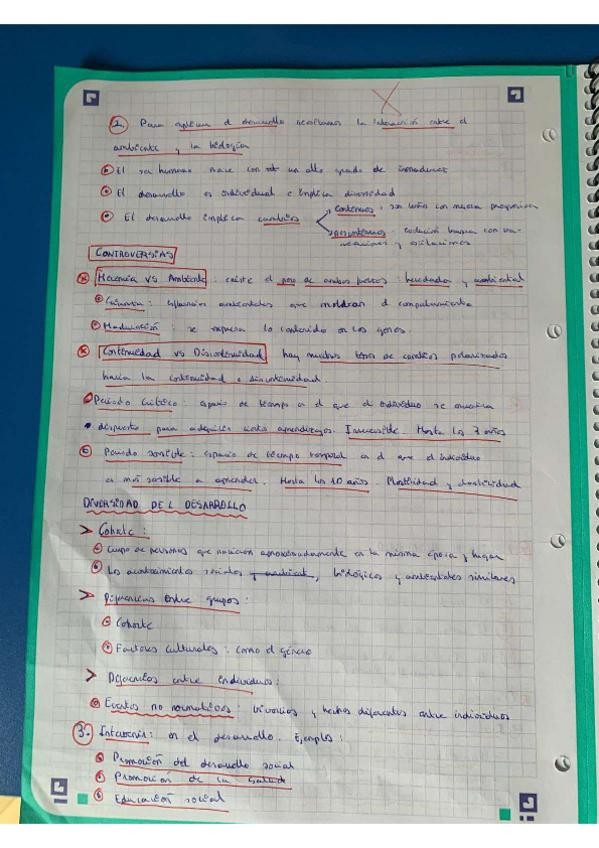 2. Para explicar el desarrollo necesitamos la interacción entre el
ambiente y la biología
El ser humano nace con un alto grado de inmadurez
El desarrollo es individual e implica diversidad
El desarrollo implica cambios
Continuos: son leves con mejora progresiva
Discontinuos: evolución brusca con va-
riaciones y oscilaciones
CONTROVERSIAS
Herencia VS Ambiente: existe el peso de ambos factores: heredados y ambiental
Crianza: influencias ambientales que moldean el comportamiento
Maduración: se expresa lo contenido en los genes.
Continuidad vs Discontinuidad hay muchos tipos de cambios polarizados
hacia la continuidad o discontinuidad.
Periodo Crítico: espacio de tiempo en el que el individuo se encuentra
dispuesto para adquirir ciertos aprendizajes. Irreversible. Hasta los 3 años
Periodo sensible: espacio de tiempo temporal en el que el individuo
es más sensible a aprender. Hasta los 10 años. Plasticidad y
DIVERSIDAD DEL DESARROLLO
> Cohorte:
Grupo de personas que nacieron aproximadamente en la misma época y lugar
Los acontecimientos sociales, biológicos y ambientales similares
> Diferencias entre grupos:
Cohorte
Factores culturales: como el género
> Diferencias entre individuos:
Eventos no normativos: vivencias y hechos diferentes entre individuos
3. Intervenir: en el desarrollo. Ejemplos:
Promoción del desarrollo social
Promoción de la salud
Educación social